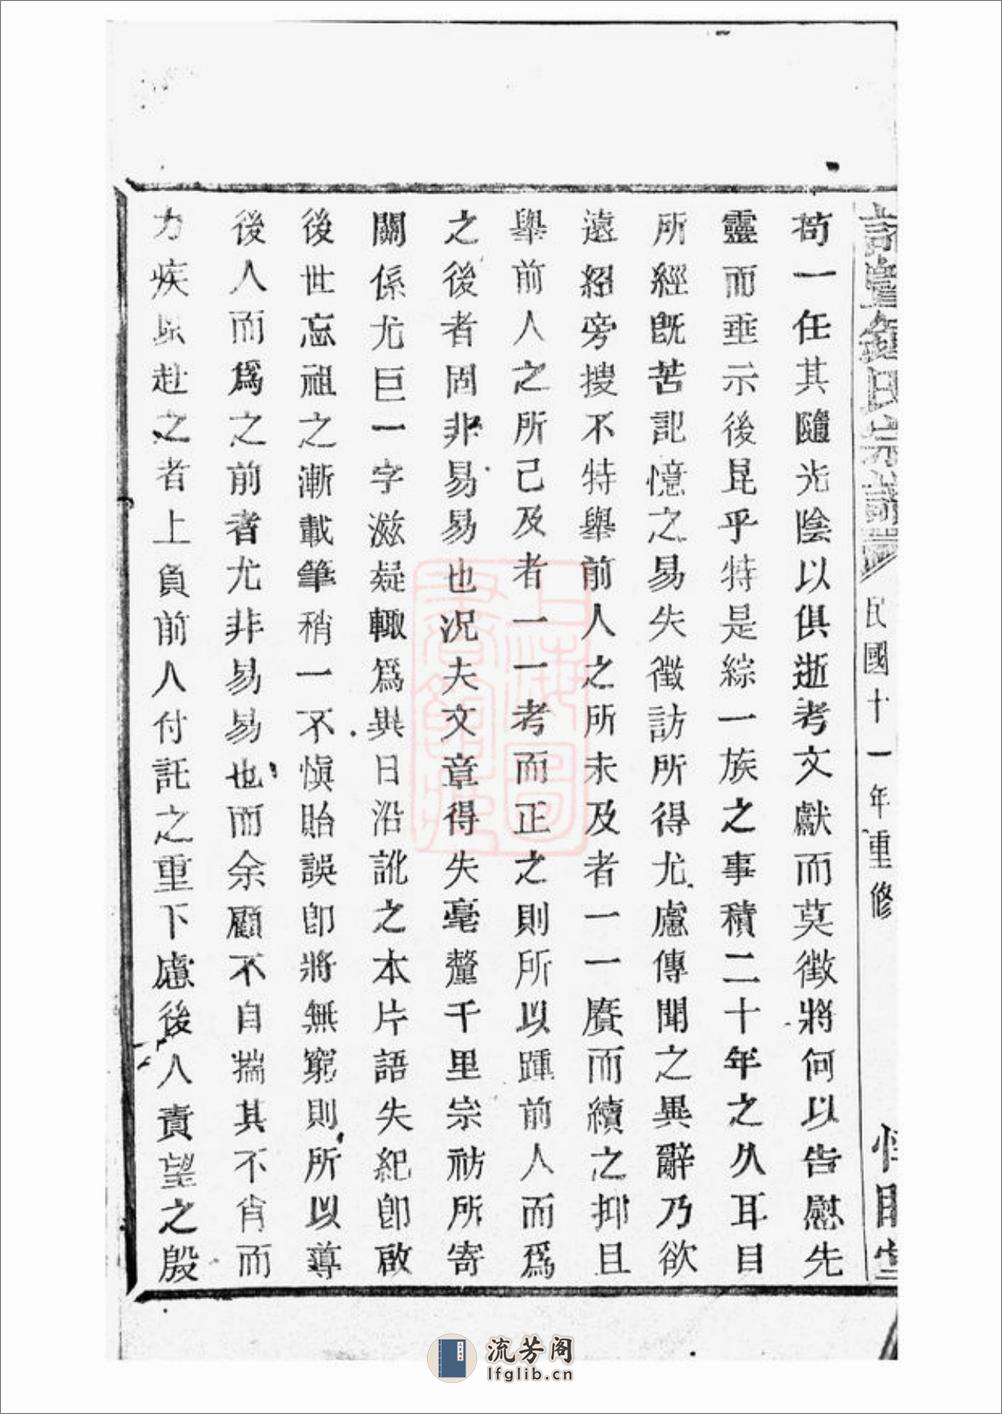 氏宗譜 民國十一年重修
苟一任其隨光陰以俱逝考文獻而莫徵將何以告慰先
靈而垂示後昆乎特是綜一族之事積二十年之久耳目
所經既苦記憶之易失徵訪所得尤慮傳聞之異辭乃欲
遠紹旁搜不特舉前人之所未及者一一賡而續之抑且
舉前人之所己及者一一考而正之則所以踵前人而爲
之後者固非易易也況夫文章得失毫釐千里宗祊所寄
關係尤巨一字滋疑輙爲異日沿訛之本片語失紀卽啟
後世忘祖之漸載筆稍一不愼貽誤卽將無窮則所以導
後人而爲之前者尤非易易也而余顧不自揣其不肖而
力疾以赴之者上負前人付託之重下慮後人責望之殷
上海圖書館藏
流芳阁
lfglib.cn